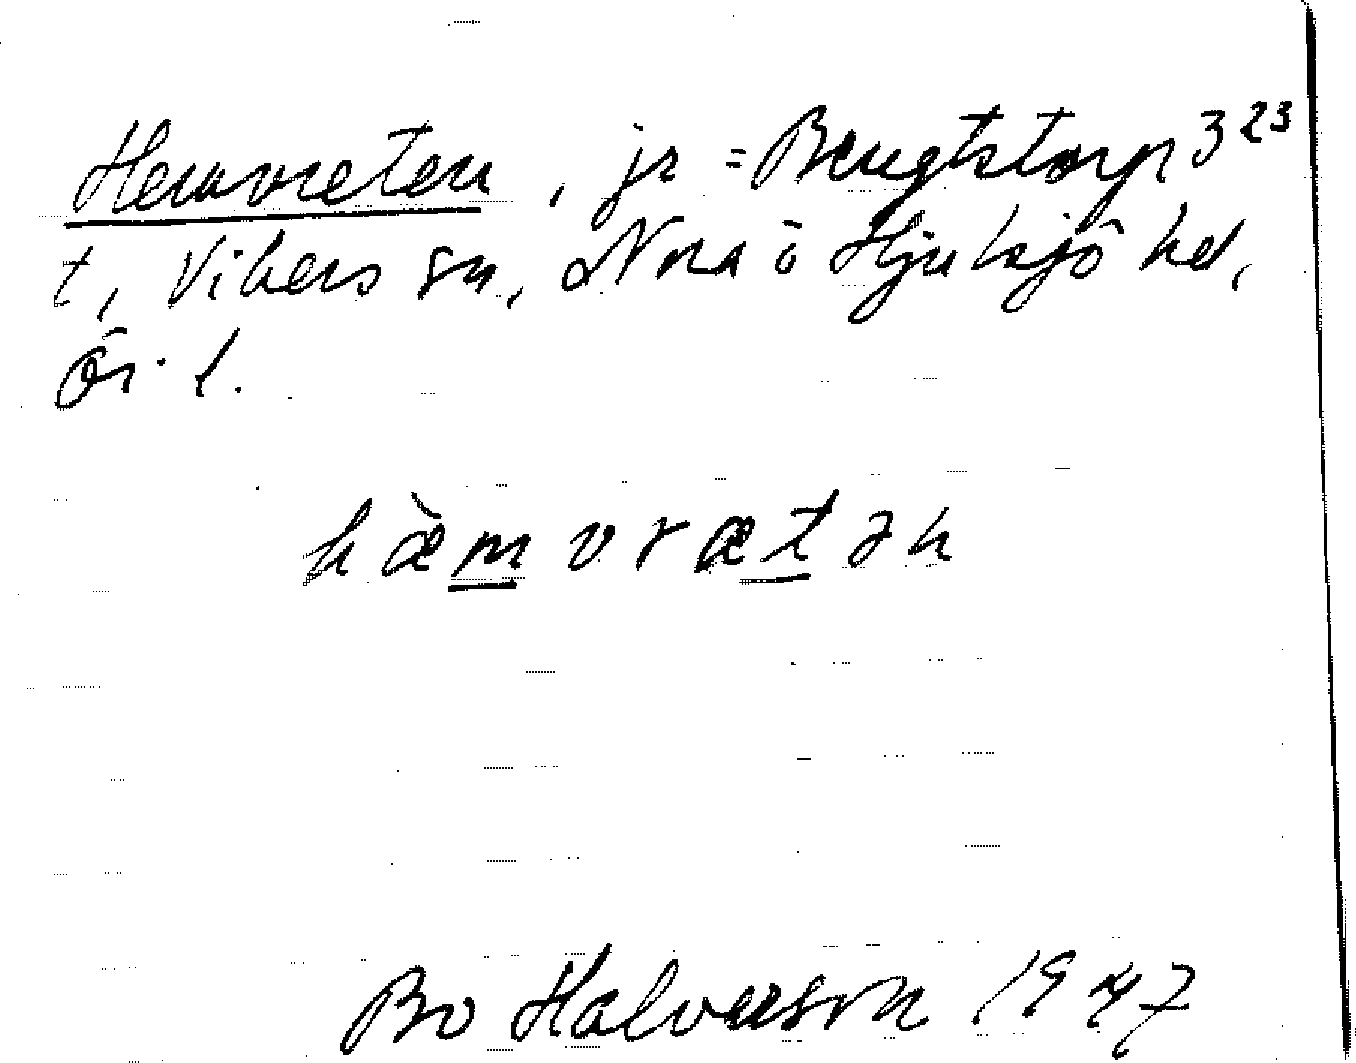 Hemvreten, jr = Bengtstorp 3²³
t, Vikers sn, Nora o Hjulsjö hd,
Ör. l.
hæ̀m̲vræt̲ən
Bo Halvarson 1947